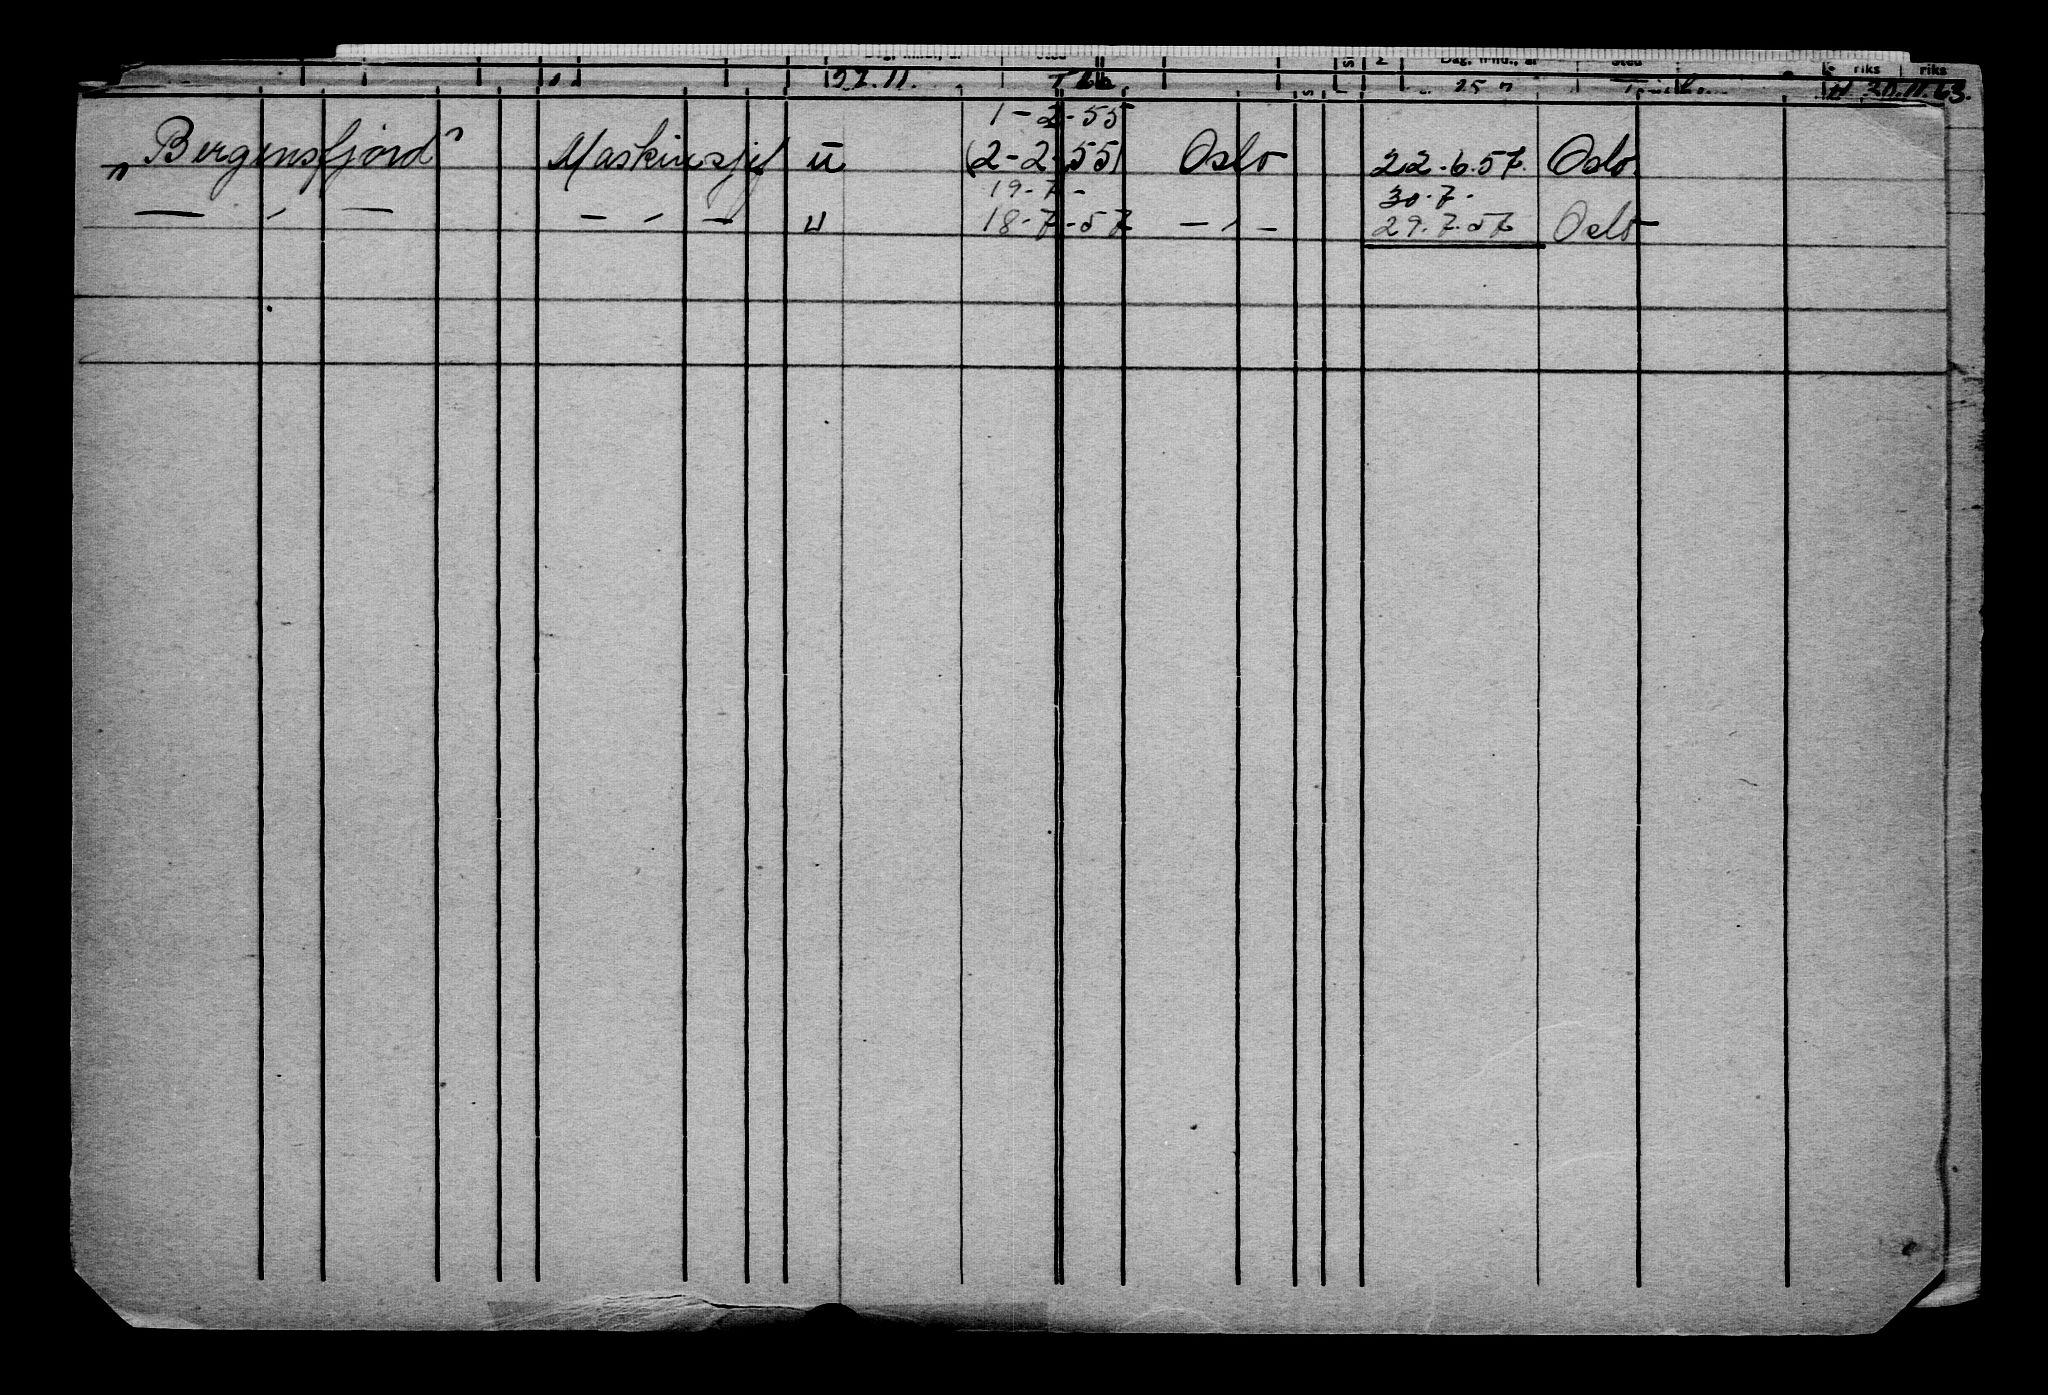 riks riks
27.11. 25 7 30.11.63.
1-2-55
„Bergensfjord" Maskinsjef ü (2-2-55) Oslo 22.6.57. Oslo
19-7- 30.7-
— ʹ — — ʹ — u 18-7-57 — ʹ — 29.7.57 Oslo